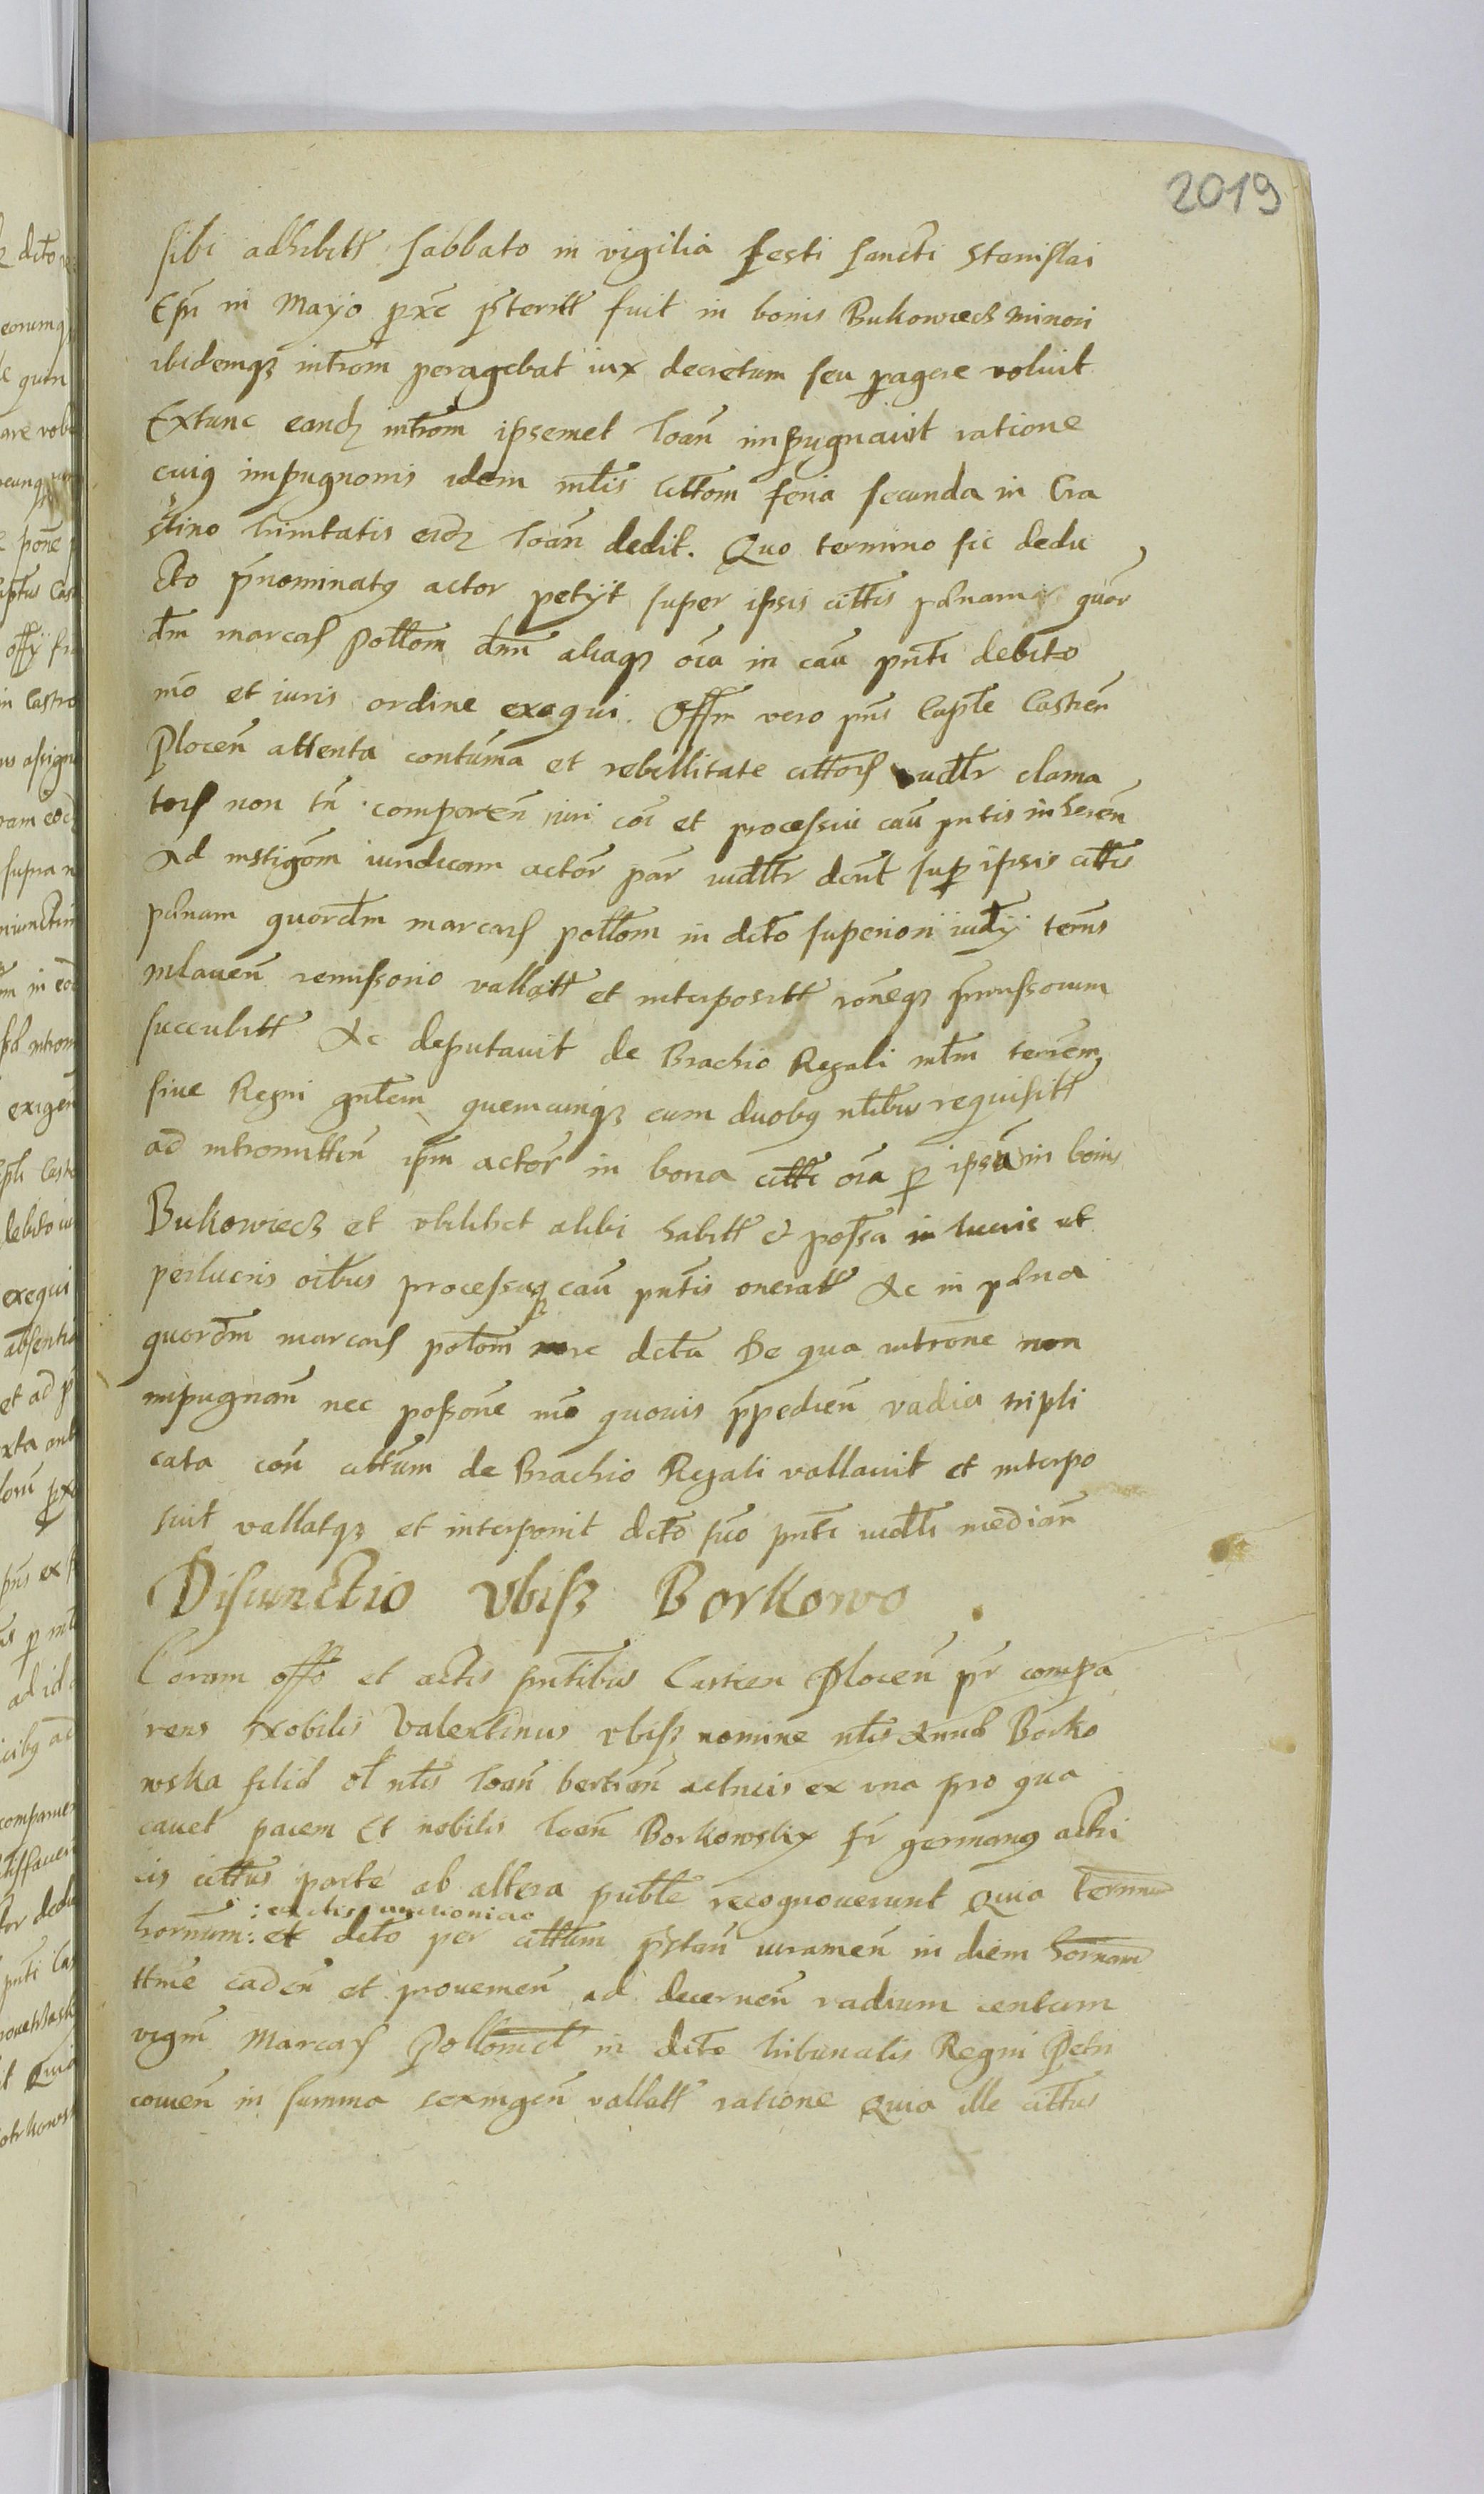 2019
sibi adhibitt sabbato in vigilia festi sancti Stanislai
Epi in Mayo prx prteritt fuit in bonis Bukowiecz minori
ibidemqz introm peragebat iux decretum seu pagere voluit
Extunc eandz introm ipsemet Ioan impugnauit ratione
cuius impugnonis idem mltis cittom feria secunda in Cra
stino trinitatis eidz Ioan dedit. Quo termino sic dedu
cto prnominatus actor petijt super ipsis cittis quor
dm marcas pollom dnu aliaqz oia in cau pnti debito
mo et iuris ordine exequi. Offm vero pns Capte Castren
Plocen attenta contuma et rebellitate cittors iudtr clama
tors non tn comporen iuri coi et processui cau pntis inheren
Ad instigom iuridicam actor par iudtr dcnt sup ipsis cittis
paenam quordm marcars pollom in dcto superiori iudy terns
inlauen remissorio vallatt et interpositt roneqz prmissorum
succubitt Ac deputavit de Brachio Regali mltm terrem
siue Regni gntem quemcunqz cum duobus nltibus requisitt
ad intromitten ipm actor in bona citti oia p ipsu in bonis
Bukowiecz et vbilibet alibi habitt et possa in lucris et
perlucris oibus processuqz cau pntis oneratt Ac in paena
quordm marcars pollom dcta De qua introne non
impugnan nec possone mo quovis prpedien vadia tripli
cata con cittum de Brachio Regali vallauit et interpo
suit vallatqz et interponit dcto suo pnti iudtti median
Disiunctio Vbisz Borkowo
Coram offo et actis pntibus Castren Plocen pr compa
rens Nobilis Valentinus vbisz nomine nltis Annae Borko
wska filia ol nltis Ioan actricis ex una pro qua
cauet pacem Et nobilis Ioan Borkowsky fr germanus actri
cis cittus parte ab altera publte recognoverunt Quia termin
hornum: et dcto per cittum prstan iuramen in diem hornam
ttme caden et prouenien ad decernen vadium centum
vigin Marcars Pollonict in dcto tribunalis Regni Petri
couien in summa vallatt ratione Quia ille cittus